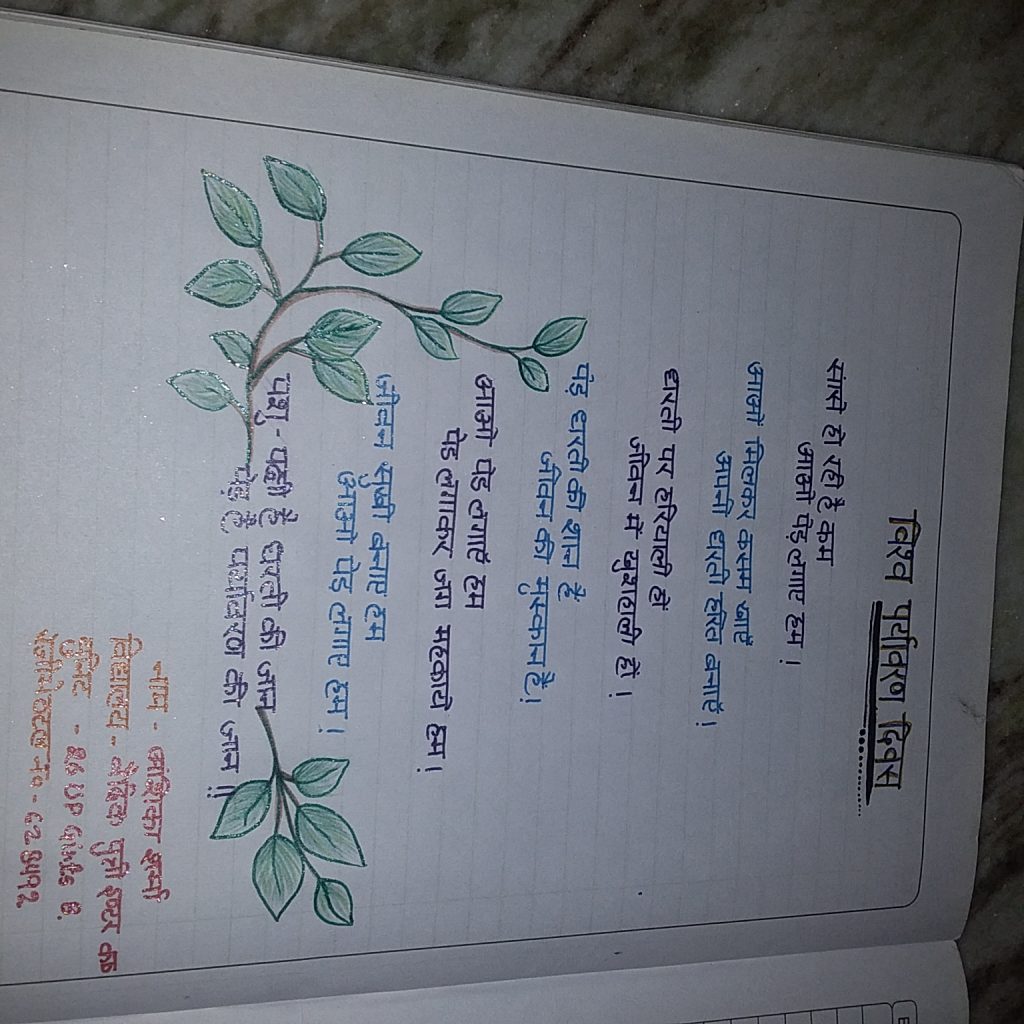 विश्व पर्यावरण दिवस
सांसे हो रही है कम
आओ पेड़ लगाए हम।
आओ मिलकर कसम खाएँ
अपनी धरती हरित बनाएँ।
धरती पर हरियाली हो
जीवन में खुशहाली हो।
पेड़ धरती की शान है
जीवन की मुस्कान है।
आओ पेड़ लगाएँ हम
पेड़ लगाकर जग महकाये हम।
जीवन सुखी बनाए हम
आओ पेड़ लगाए हम।
पशु-पक्षी है धरती की जान
पेड़ है पर्यावरण की जान।।
नाम - अंशिका शर्मा
विद्यालय - वैदिक पुत्री इण्टर
यूनिट - 26 UP Girls B.
रेजीमेन्टल नं० - 628492